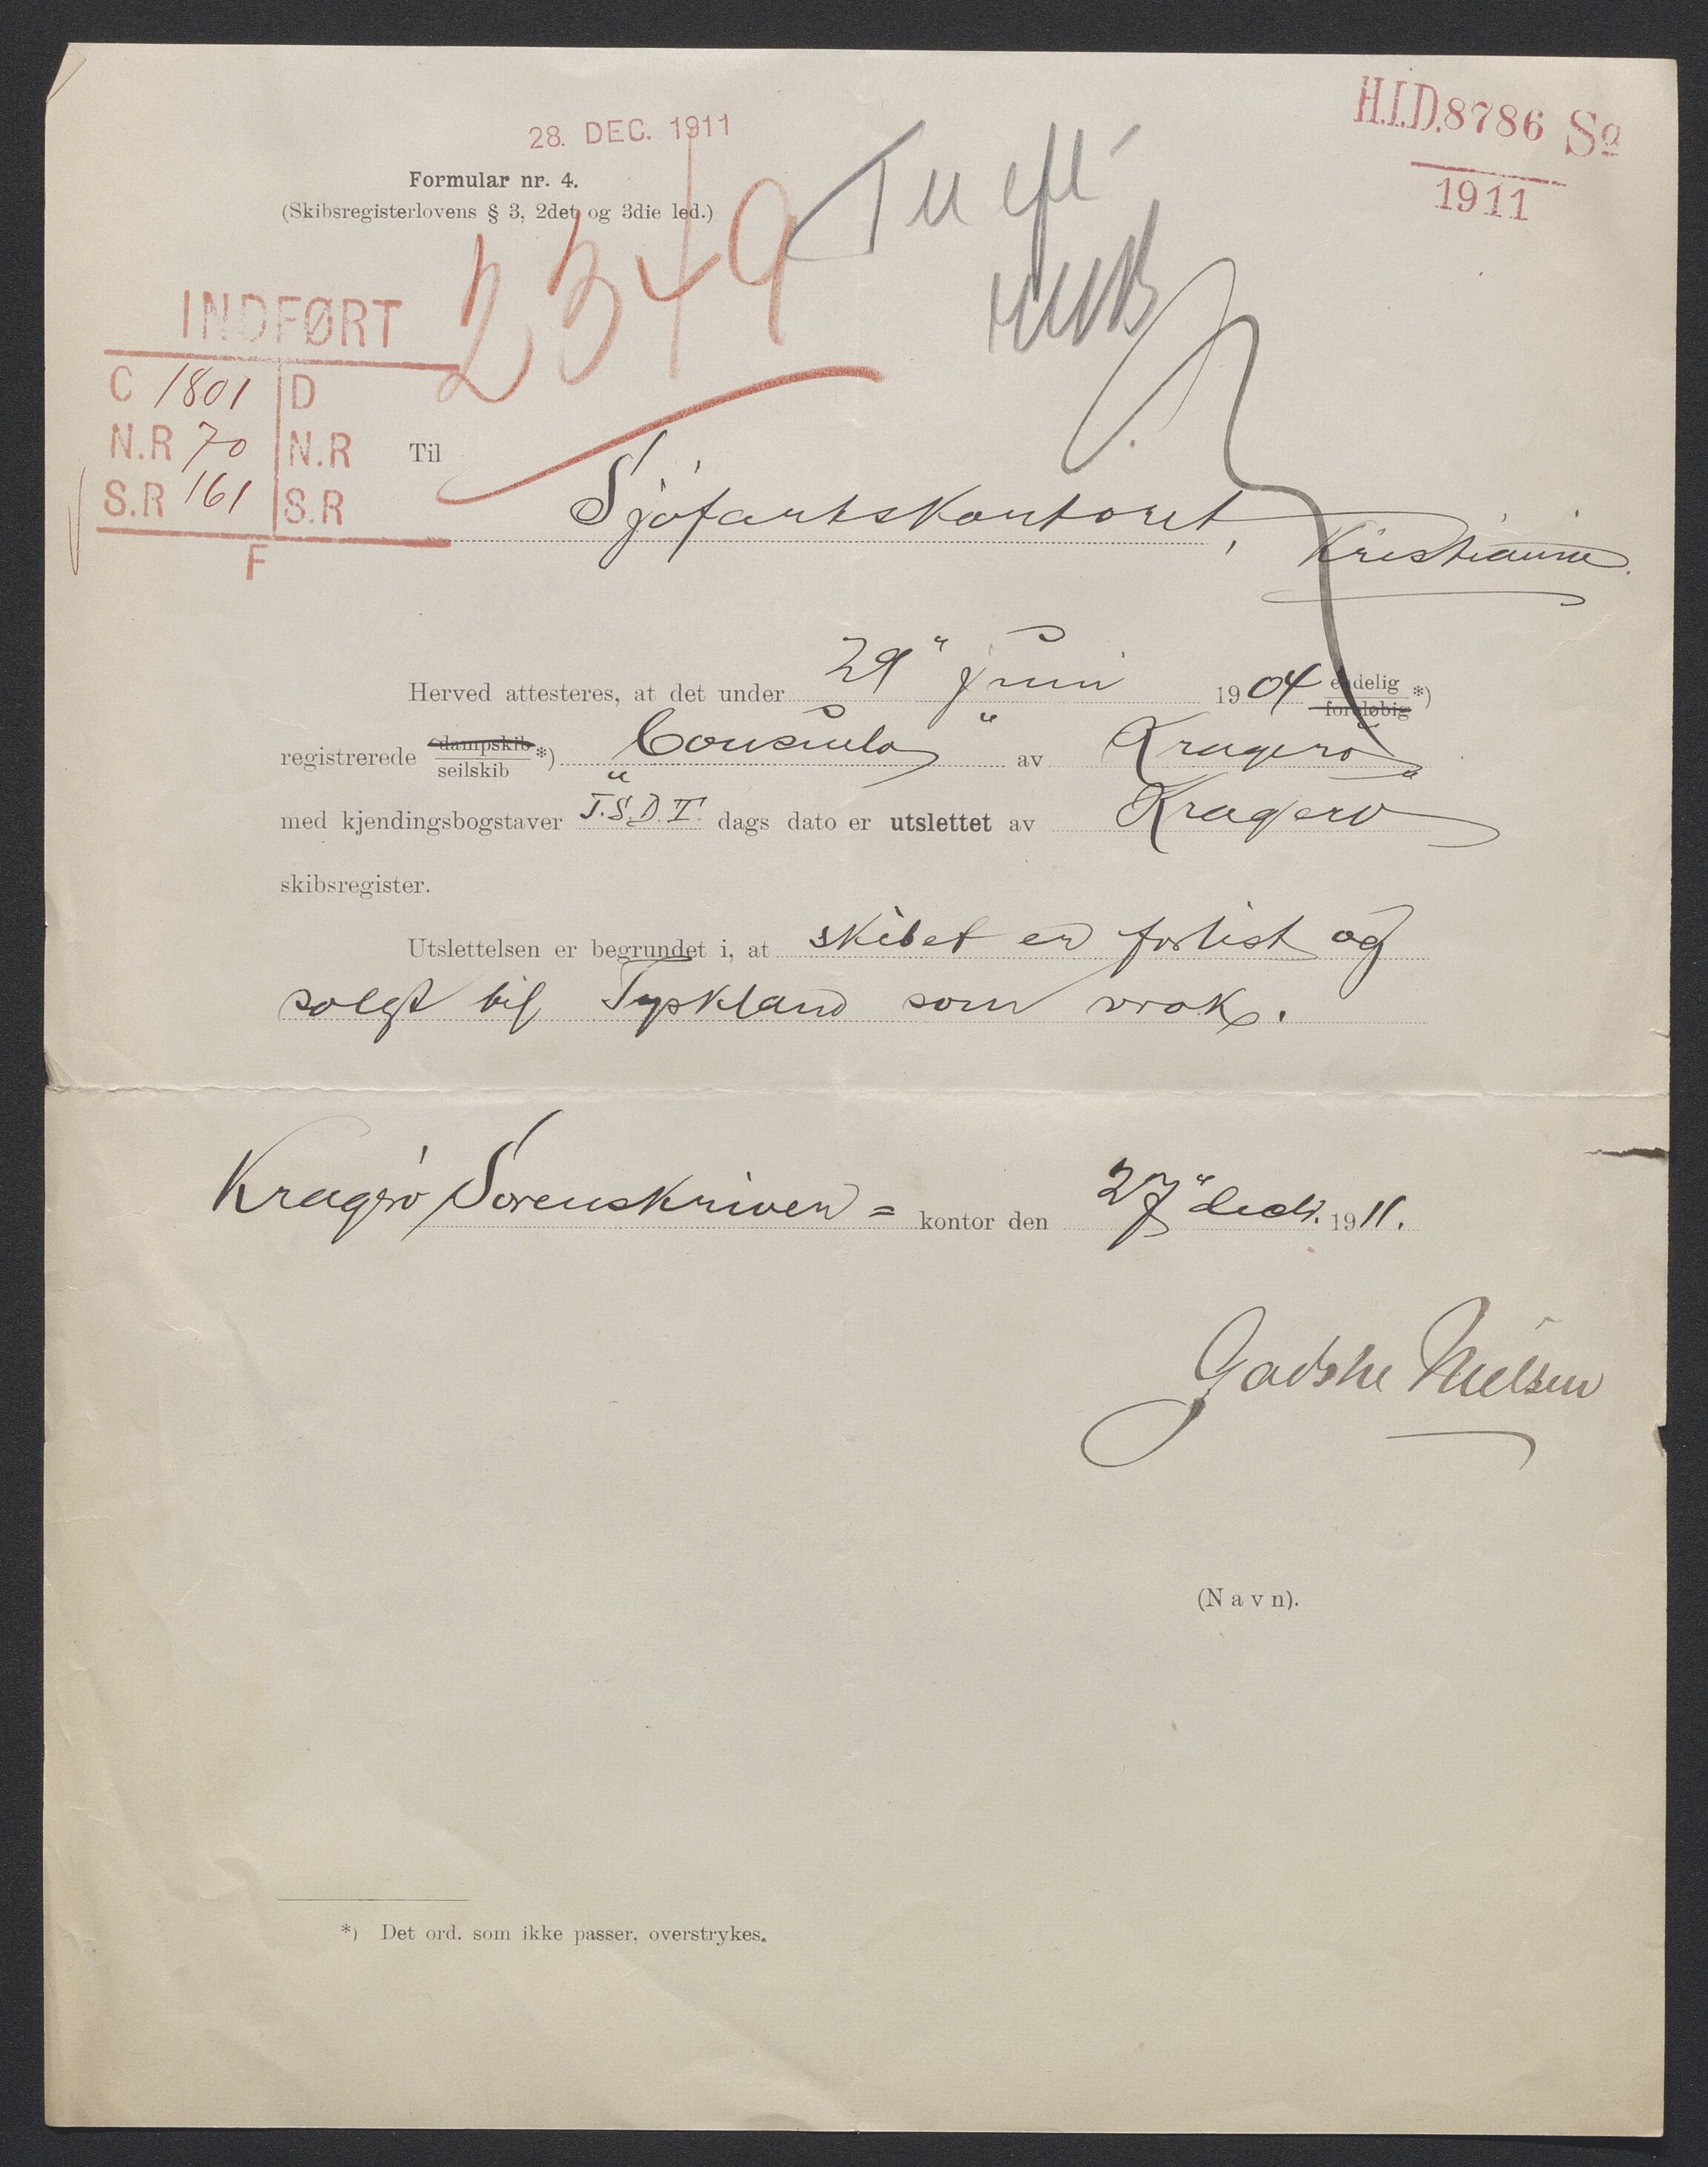 28. DEC. 1911
H.I.D. 8786 Sø
1911
Formular nr. 4.
(Skibsregisterlovens § 3, 2det og 3die led.)
2349
INDFØRT
C 1801 D
N.R 70 N.R
S.R 161 S.R
F
Til
Sjøfartskontoret,
Kristiania.
Herved attesteres, at det under 29" juni 1904 endelig foreløbig *)
registrerede dampskib seilskib *) "Consuelo" av Kragerø
med kjendingsbogstaver J.S.D.T. dags dato er utslettet av Kragerø
skibsregister.
Utslettelsen er begrundet i, at skibet er forlist og
solgt til Tyskland som vrak.
Kragerø Sorenskriver= kontor den 27" decbr. 1911.
Nielsen
(Navn).
*) Det ord. som ikke passer, overstrykes.